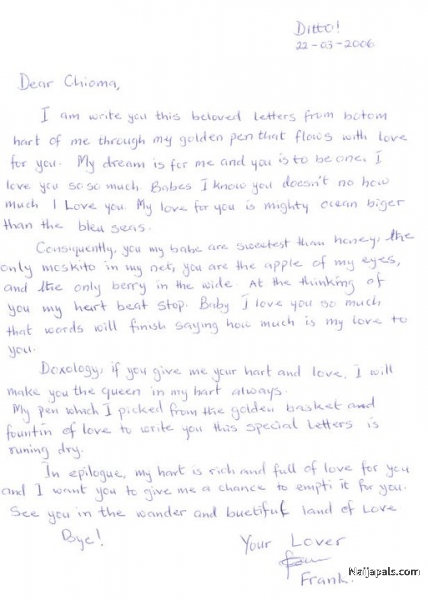 Ditto!
22-03-2006
Dear Chioma,
I am write you this beloved letters from botom
hart of me through my golden pen that flows with love
for you. My dream is for me and you is to be one. I
love you so so much. Babes I know you doesn't no how
much I Love you. My love for you is mighty ocean biger
than the bleu seas.
Consiquently, you my babe are sweetest than honey, the
only moskito in my net, you are the apple of my eyes,
and the only berry in the wide. At the thinking of
you my hert beat stop. Baby I love you so much
that words will finish saying how much is my love to
you.
Doxology, if you give me your hart and love, I will
make you the queen in my hart always.
My pen which I picked from the golden basket and
fountin of love to write you this special letters is
runing dry.
In epilogue, my hart is rich and full of love for you
and I want you to give me a chance to empti it for you.
See you in the wander and buetiful land of Love
Bye!
Your Lover
Frank.
Naijapals.com